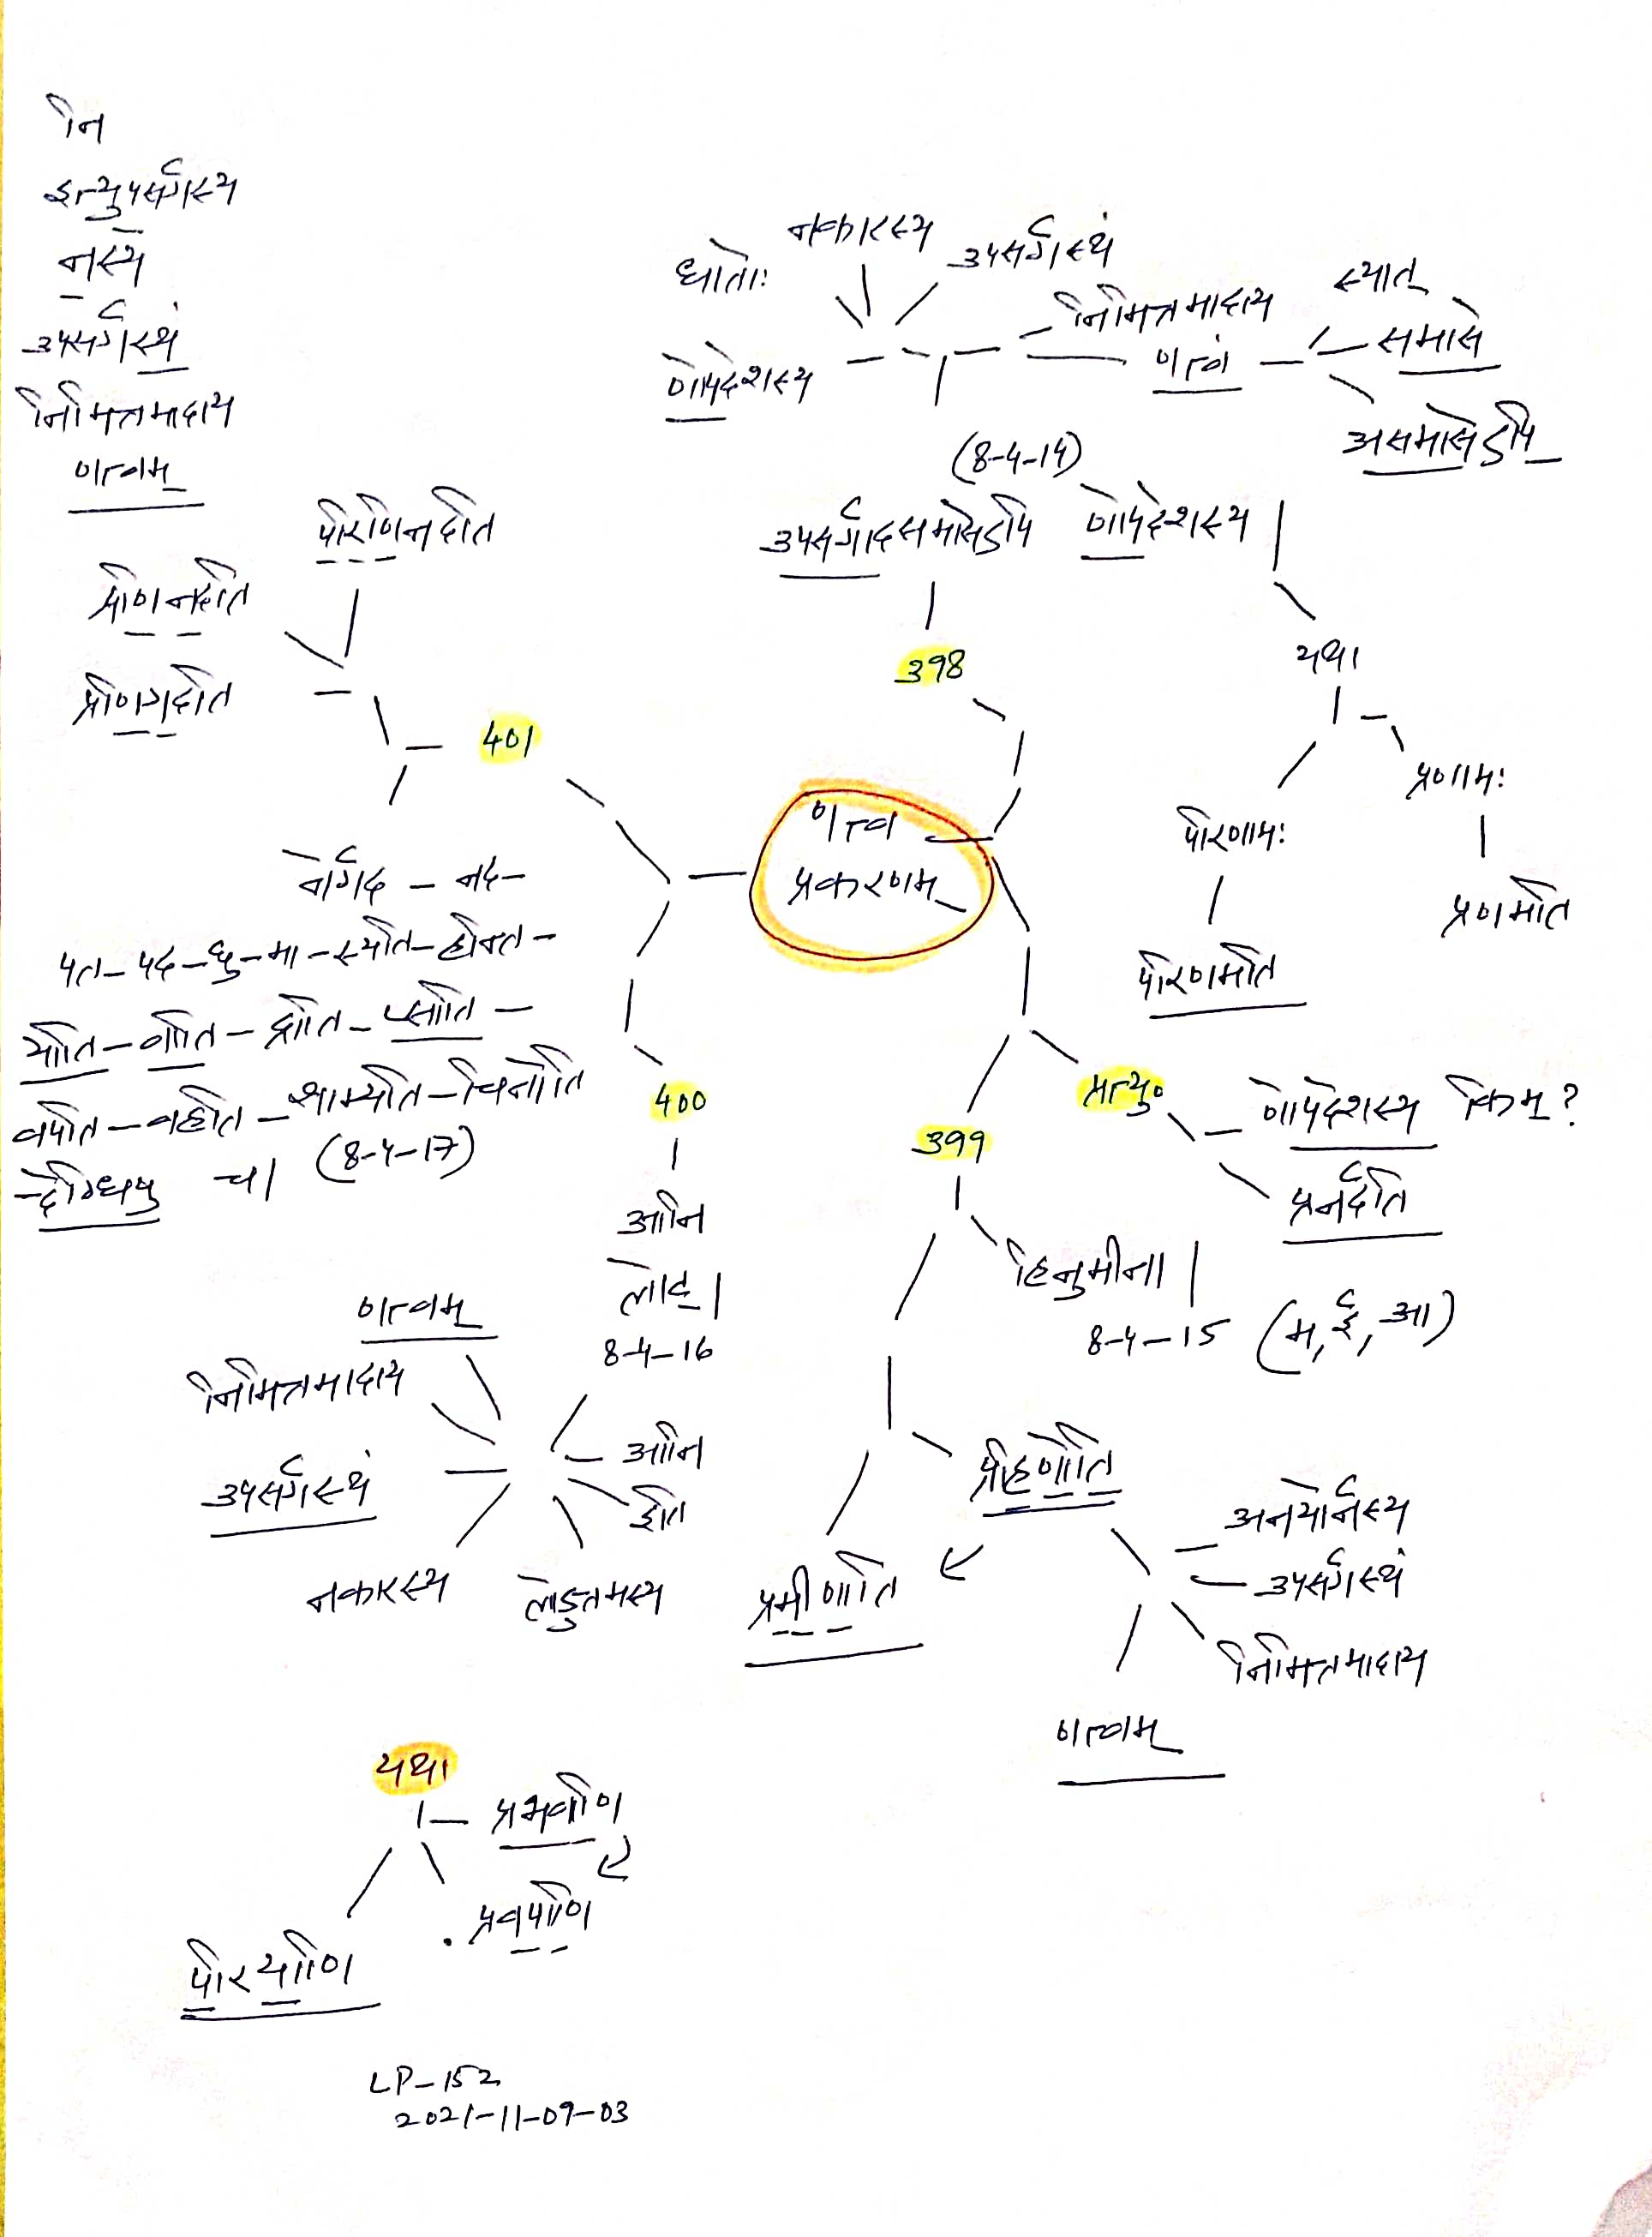 णत्व
प्रकरणम्
398
उपसर्गादसमासेऽपि णोपदेशस्य |
(8-4-14)
णोपदेशस्य
धातोः
नकारस्य
उपसर्गस्थं
निमित्तमादाय
णत्वं
स्यात्
समासे
असमासेऽपि
यथा
प्रणामः
प्रणमति
परिणामः
परिणमति
प्रत्यु०
णोपदेशस्य किम्?
प्रनर्दति
399
हिनुमीना |
8-4-15 (म, ई, आ)
प्रहिणोति
प्रमीणाति
अनयोर्नस्य
उपसर्गस्थं
निमित्तमादाय
णत्वम्
400
आनि
लोट् |
8-4-16
आनि
इति
लोडुत्तमस्य
नकारस्य
उपसर्गस्थं
निमित्तमादाय
णत्वम्
यथा
प्रभवाणि
प्रवपाणि
परियाणि
401
नेर्गद - नद -
पत - पद - घु - मा - स्यति - हन्ति -
याति - वाति - द्राति - प्साति -
वपति - वहति - शाम्यति - चिनोति
- देग्धिषु च | (8-4-17)
प्रणिगदति
प्रणिनदति
परिणिनदति
नि
इत्युपसर्गस्य
नस्य
उपसर्गस्थं
निमित्तमादाय
णत्वम्
LP-152
2021-11-09-03